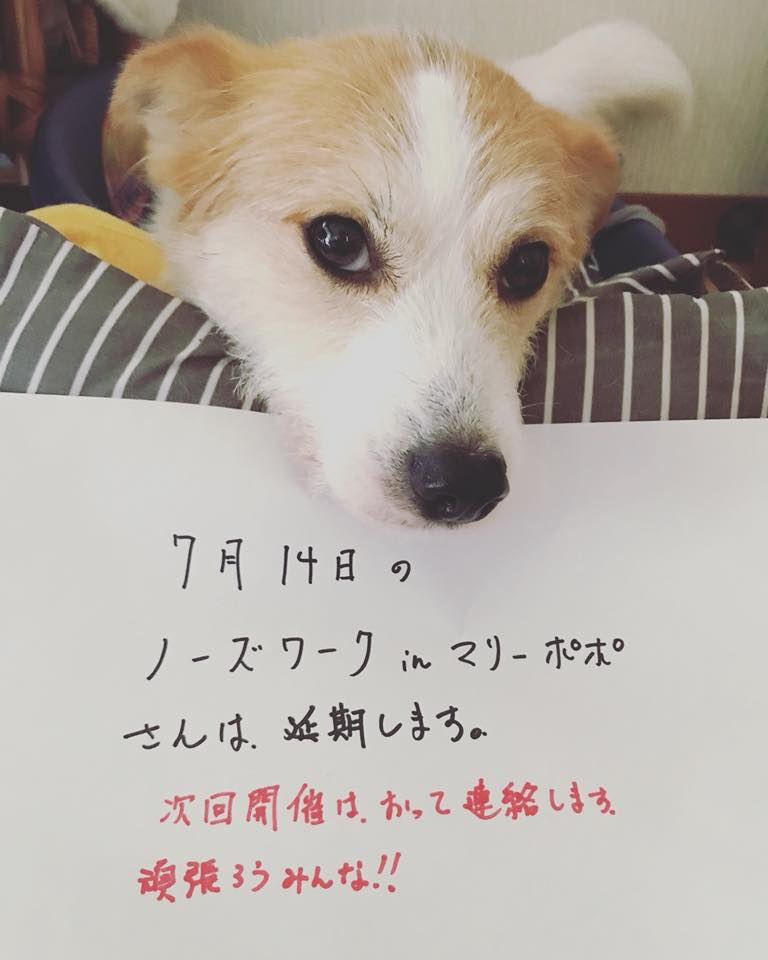 7月14日の
ノーズワーク in マリーポポ
さんは、延期します。
次回開催は、おって連絡します。
頑張ろうみんな!!